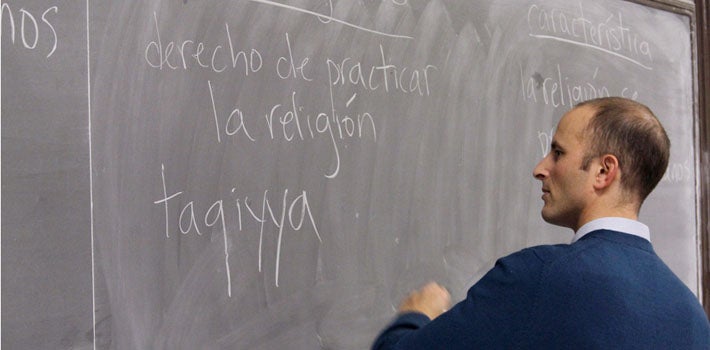 nos
derecho de practicar
la religión
taqiyya
característica
la religión se